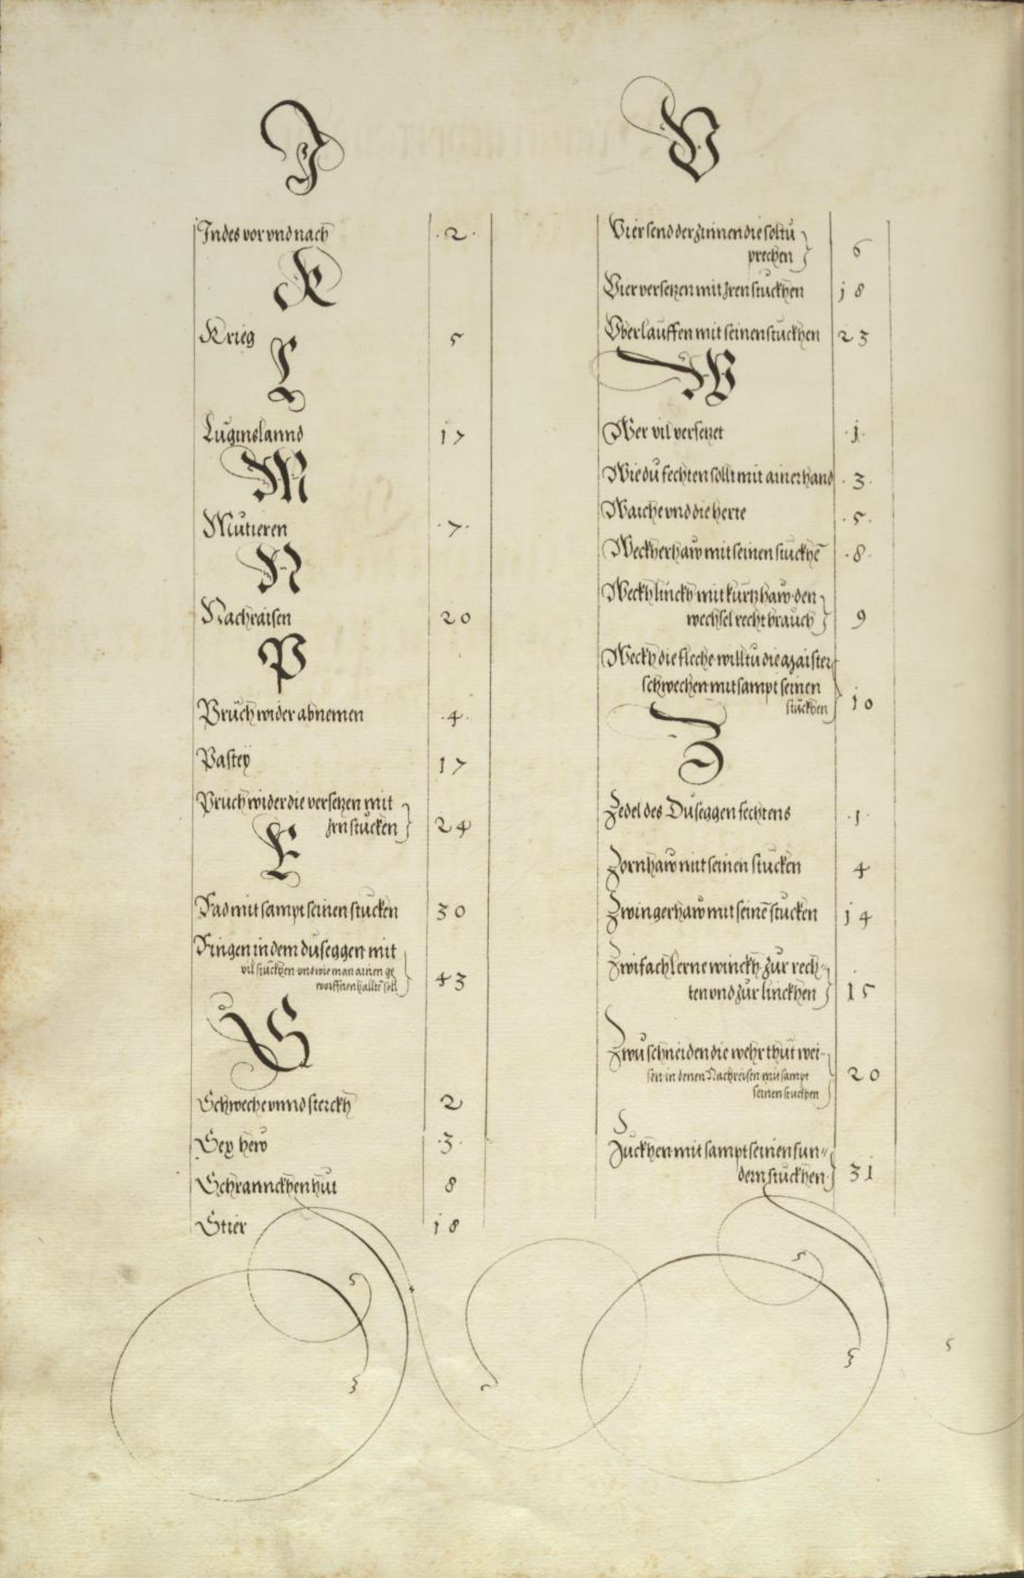 I
Indes vor vnd nach .2.
K
Krieg 5
L
Luginslannd 17
M
Mutieren .7.
N
Nachraisen 20
P
Bruch wider abnemen .4.
Pastey 17
Bruch wider die versetzen mit
jrn stucken 24
R
Rad mit sampt seinen stucken 30
Ringen in dem duseggen mit
vil stuckhen vnd wie man ainen ge
worffnen hallten soll 43
S
Schweche vnnd sterckh 2
Sex hew .3.
Schranckhen hut 8
Stier 18
V
Vier send der zinnen die soltu
prechen 6
Vier versetzen mit jren stuckhen 18
Vberlauffen mit seinen stuckhen 23
W
Wer vil versetzet .1.
Wie du fechten sollt mit ainer hand .3.
Waiche vnd die herte .5.
Weckherhaw mit seinen stuckhē .8.
Weckh linckh mit kurtzhaw den
wechsel recht brauch 9
Weckh die fleche willtu die
schwechen mit sampt seinen
stuckhen 10
Z
Zedel des Duseggen fechtens .1.
Zornhaw mit seinen stucken 4
Zwingerhaw mit seinē stucken 14
Zwifach lerne winckh zur rech-
ten vnd zur linckhen 15
Zwu schneiden die wehr thut wei-
sen in denen Nachreisen mit sampt
seinen stuckhen 20
Zuckhen mit sampt seinen sun-
dern stuckhen 31